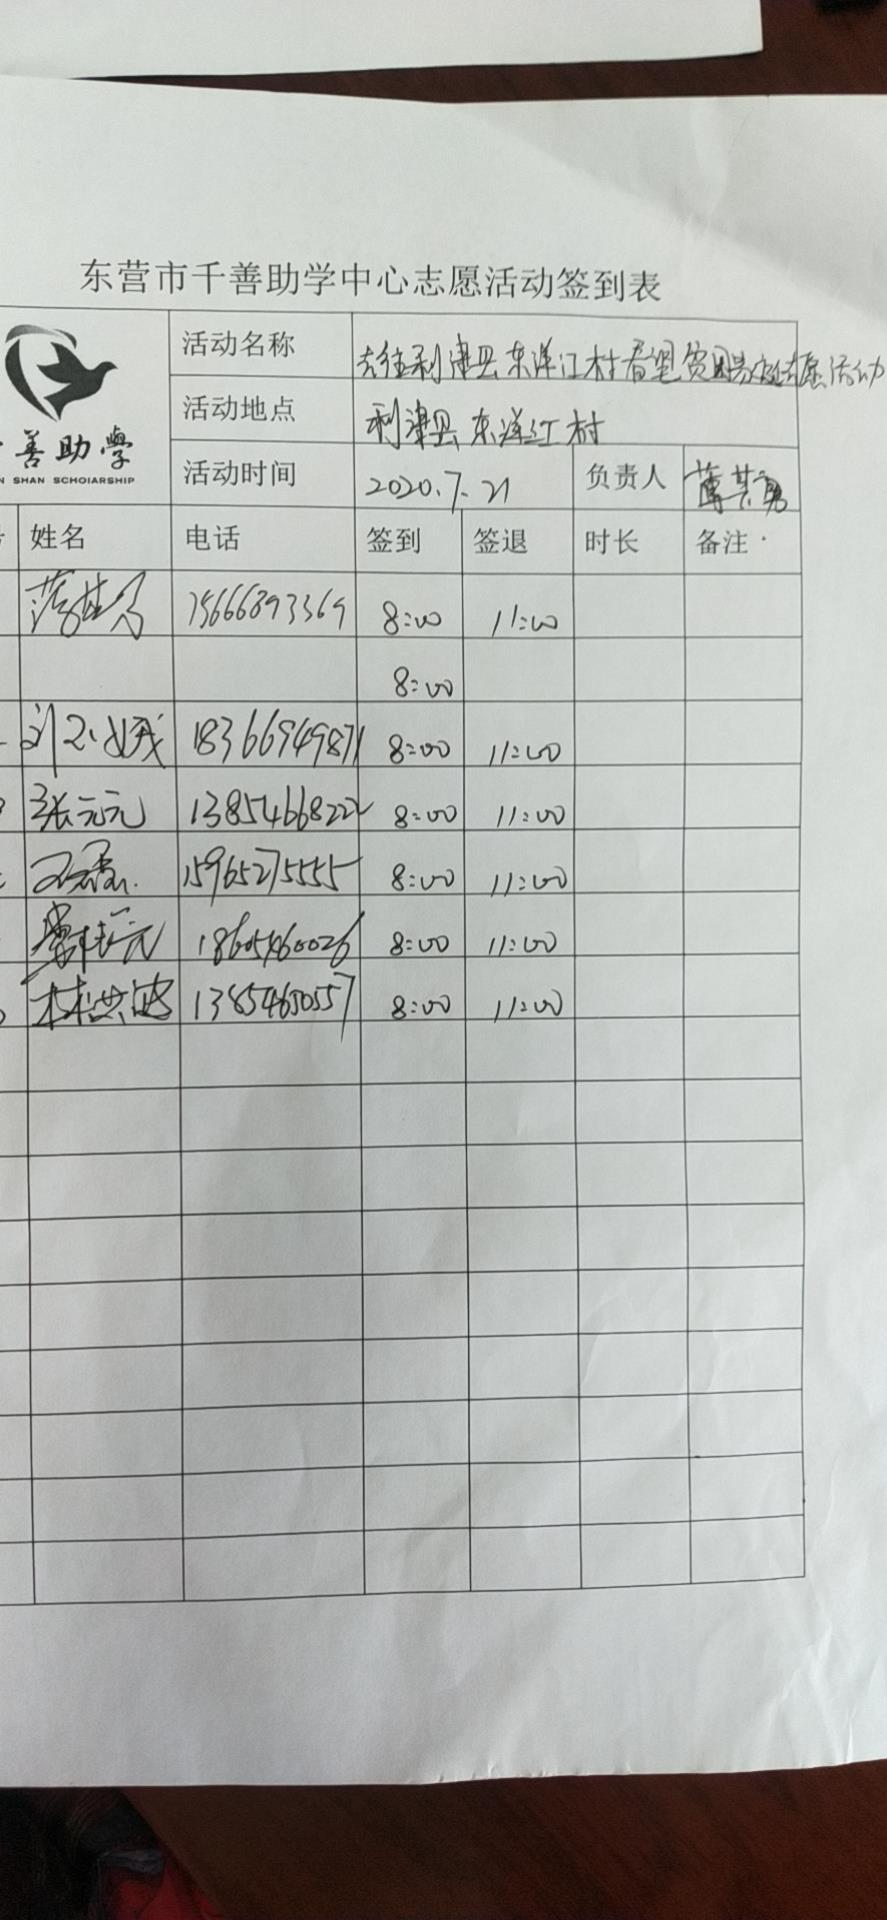 东营市千善助学中心志愿活动签到表
善助學
SHAN SCHOIARSHIP
活动名称 去往利津县东洋江村看望贫困 志愿活动
活动地点 利津县东洋江村
活动时间 2020.7.21 负责人 薄其勇
姓名 电话 签到 签退 时长 备注
15666893369 8:00 11:00
8:00
刘 18366949871 8:00 11:00
张元元 13854668222 8:00 11:00
15965275555 8:00 11:00
18605460026 8:00 11:00
林洪波 13854650557 8:00 11:00